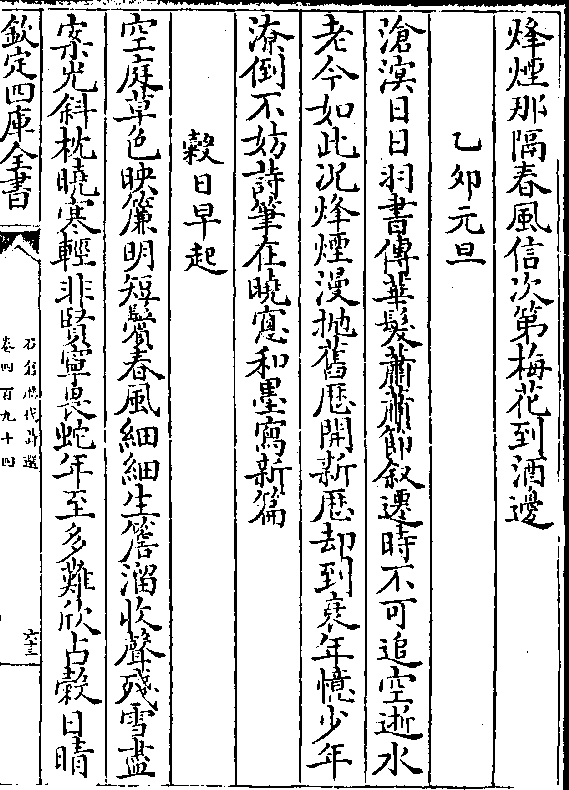 烽煙那隔春風信次第梅花到酒邊
乙夘元旦
滄溟日日羽書傳華髮蕭蕭節叙遷時不可追空逝水
老今如此况烽煙漫抛舊厯開新厯却到衰年憶少年
潦倒不妨詩筆在曉窻和墨寫新篇
穀日早起
空庭草色映簾明短鬢春風細細生簷溜收聲殘雪盡
案光斜枕曉寒輕非賢寧畏蛇年至多難欣占榖日晴
欽定四庫全書
石倉歴代詩選
卷四百九十四
六十三